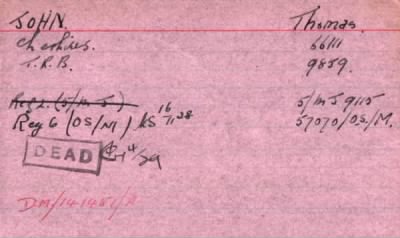 JOHN. Thomas.
Cheshires. 66111
T.R.B. 9859.
Reg 2. (S/M J) 5/MJ 9115
Reg 6 (OS/M) KS 16/11/28 57070/OS/M.
DEAD 4/29
DM/14148/A